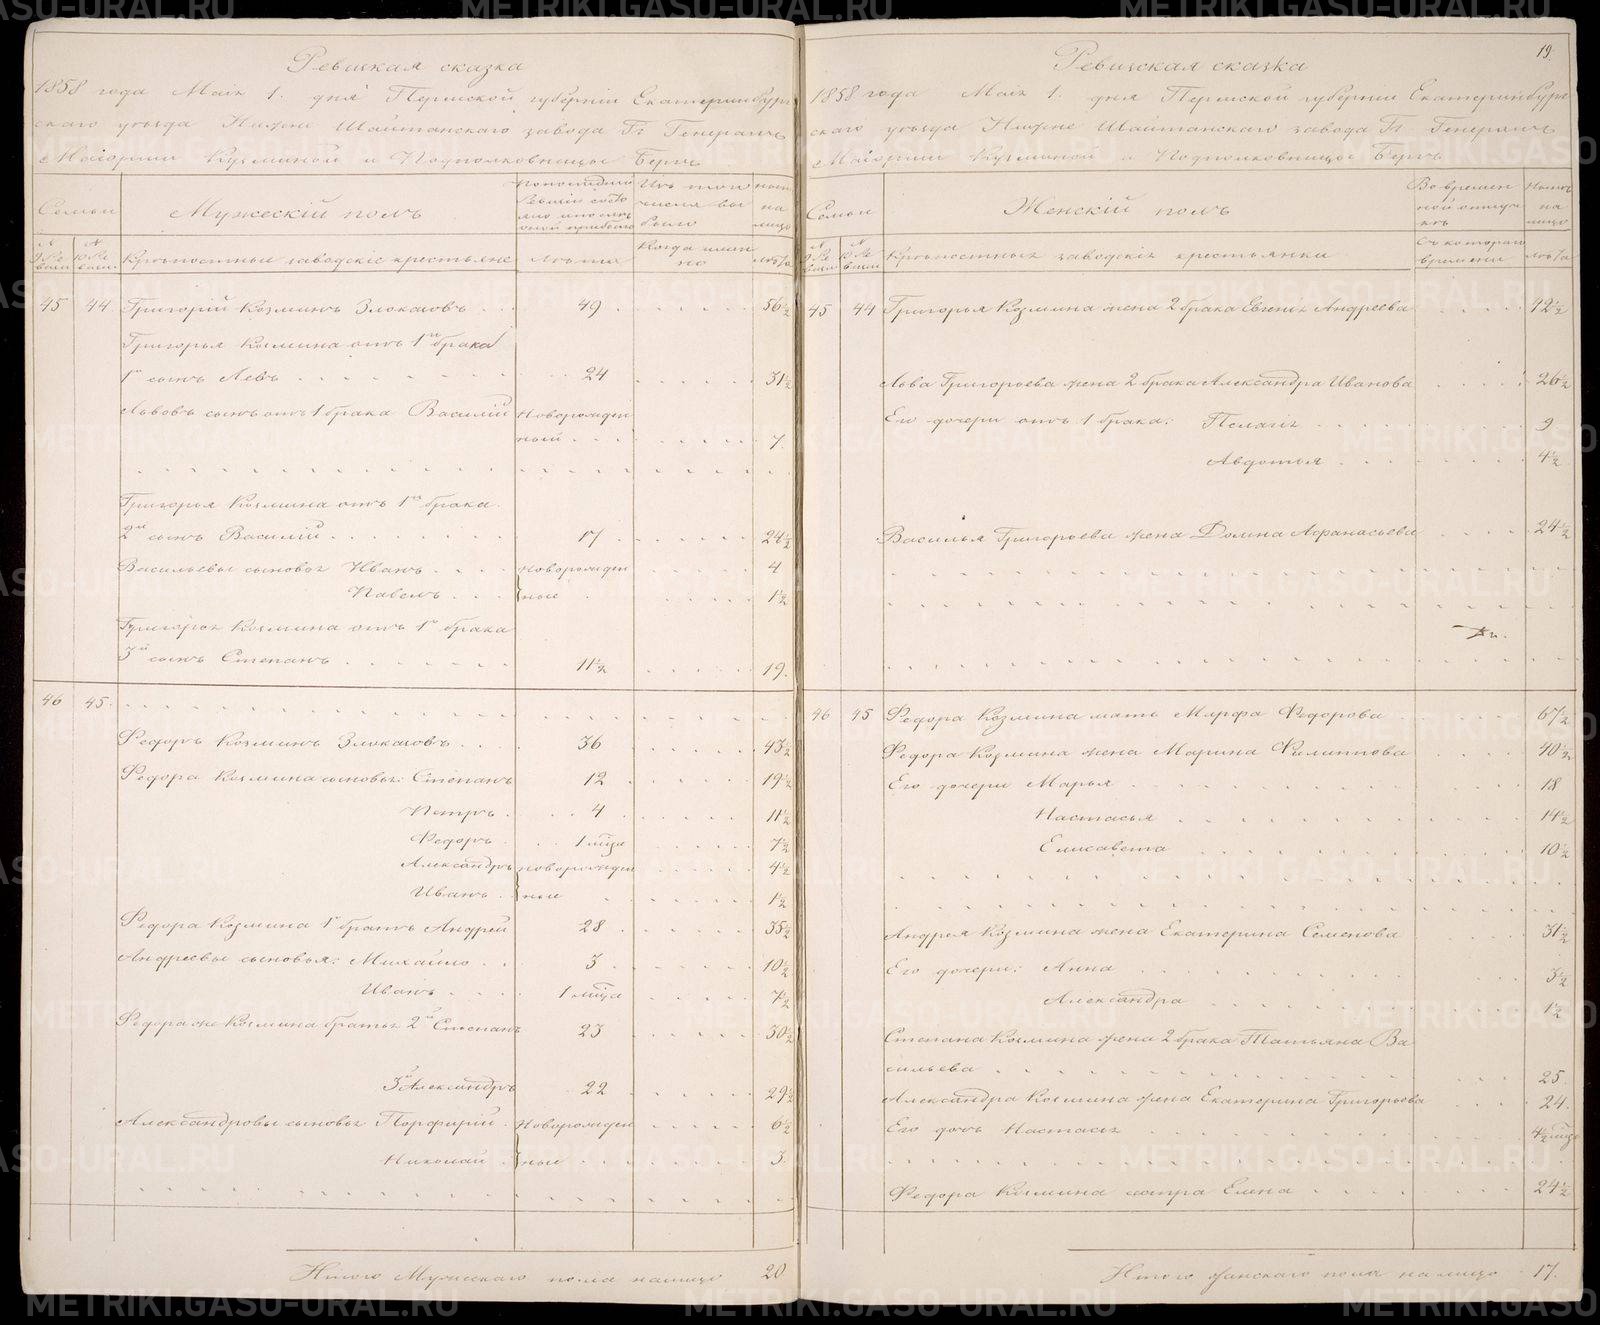 Ревизская сказка
1858 года Маія 1. дня Пермской губерніи Екатеринбург
скаго уѣзда Нижне Шайтанскаго завода Гг Генералъ
Маіорши Кузьминой и Подполковницы Бергъ
Семьи
Мужескій полъ
По послѣдней ревизіи состояло и послѣ оной прибыло
Изъ того числа выбыло
Нынѣ на лицо
№ 9 Ревизіи
№ 10 Ревизіи
Крѣпостные заводскіе крестьяне
лѣта
Когда именно
лѣта
45 44 Григорій Козминъ Злоказовъ 49 56½
Григорья Козмина отъ 1го брака
1й сынъ Левъ 24 31½
Львовъ сынъ отъ 1 брака Василій Новорожден
ный 7
Григорья Козмина отъ 1го брака
2й сынъ Василій 17 24½
Васильевы сыновья Иванъ Новорожден 4
Павелъ ные 1½
Григорья Козмина отъ 1го брака
3й сынъ Степанъ 11½ 19.
46 45
Федоръ Козминъ Злоказовъ 36 43½
Федора Козмина сыновья: Степанъ 12 19½
Петръ 4 11½
Федоръ 1 мѣца 7½
Александръ новорожден 4½
Иванъ ные 1½
Федора Козмина 1й братъ Андрей 28 35½
Андреевы сыновья: Михайло 3 10½
Иванъ 1 мѣца 7½
Федора же Козмина братья 2й Степанъ 23 30½
3й Александръ 22 29½
Александровы сыновья Порфирій Новорожден 6½
Николай ные 3
Итого Мужескаго пола налицо 20
19.
Ревизская сказка
1858 года Маія 1. дня Пермской губерніи Екатеринбург
скаго уѣзда Нижне Шайтанскаго завода Гг Генералъ
Маіорши Кузьминой и Подполковницы Бергъ
Семьи
Женскій полъ
Во временной отлучкѣ
Нынѣ на лицо
№ 9 Ревизіи
№ 10 Ревизіи
Крѣпостныя заводскія крестьянки
Съ котораго времени
лѣта
45 44 Григорья Козмина жена 2 брака Евгенія Андреева 42½
Льва Григорьева жена 2 брака Александра Иванова 26½
Его дочери отъ 1 брака: Пелагія 9
Авдотья 4½
Василья Григорьева жена Домна Афанасьева 24½
46 45 Федора Козмина мать Марфа Федорова 67½
Федора Козмина жена Марина Филиппова 40½
Его дочери Марья 18
Настасья 14½
Елисавета 10½
Андрея Козмина жена Екатерина Семенова 31½
Его дочери: Анна 3½
Александра 1½
Степана Козмина жена 2 брака Татьяна Ва
сильева 25.
Александра Козмина жена Екатерина Григорьева 24.
Его дочь Настасья 4½ мѣца
Федора Козмина сестра Елена 24½
Итого женскаго пола на лицо 17.
METRIKI.GASO-URAL.RU